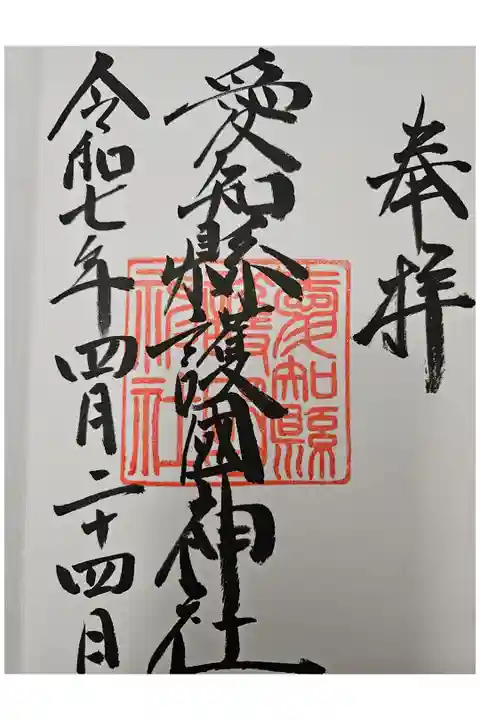 奉拝
愛知縣護國神社
愛知縣
護國
神社
令和七年四月二十四日